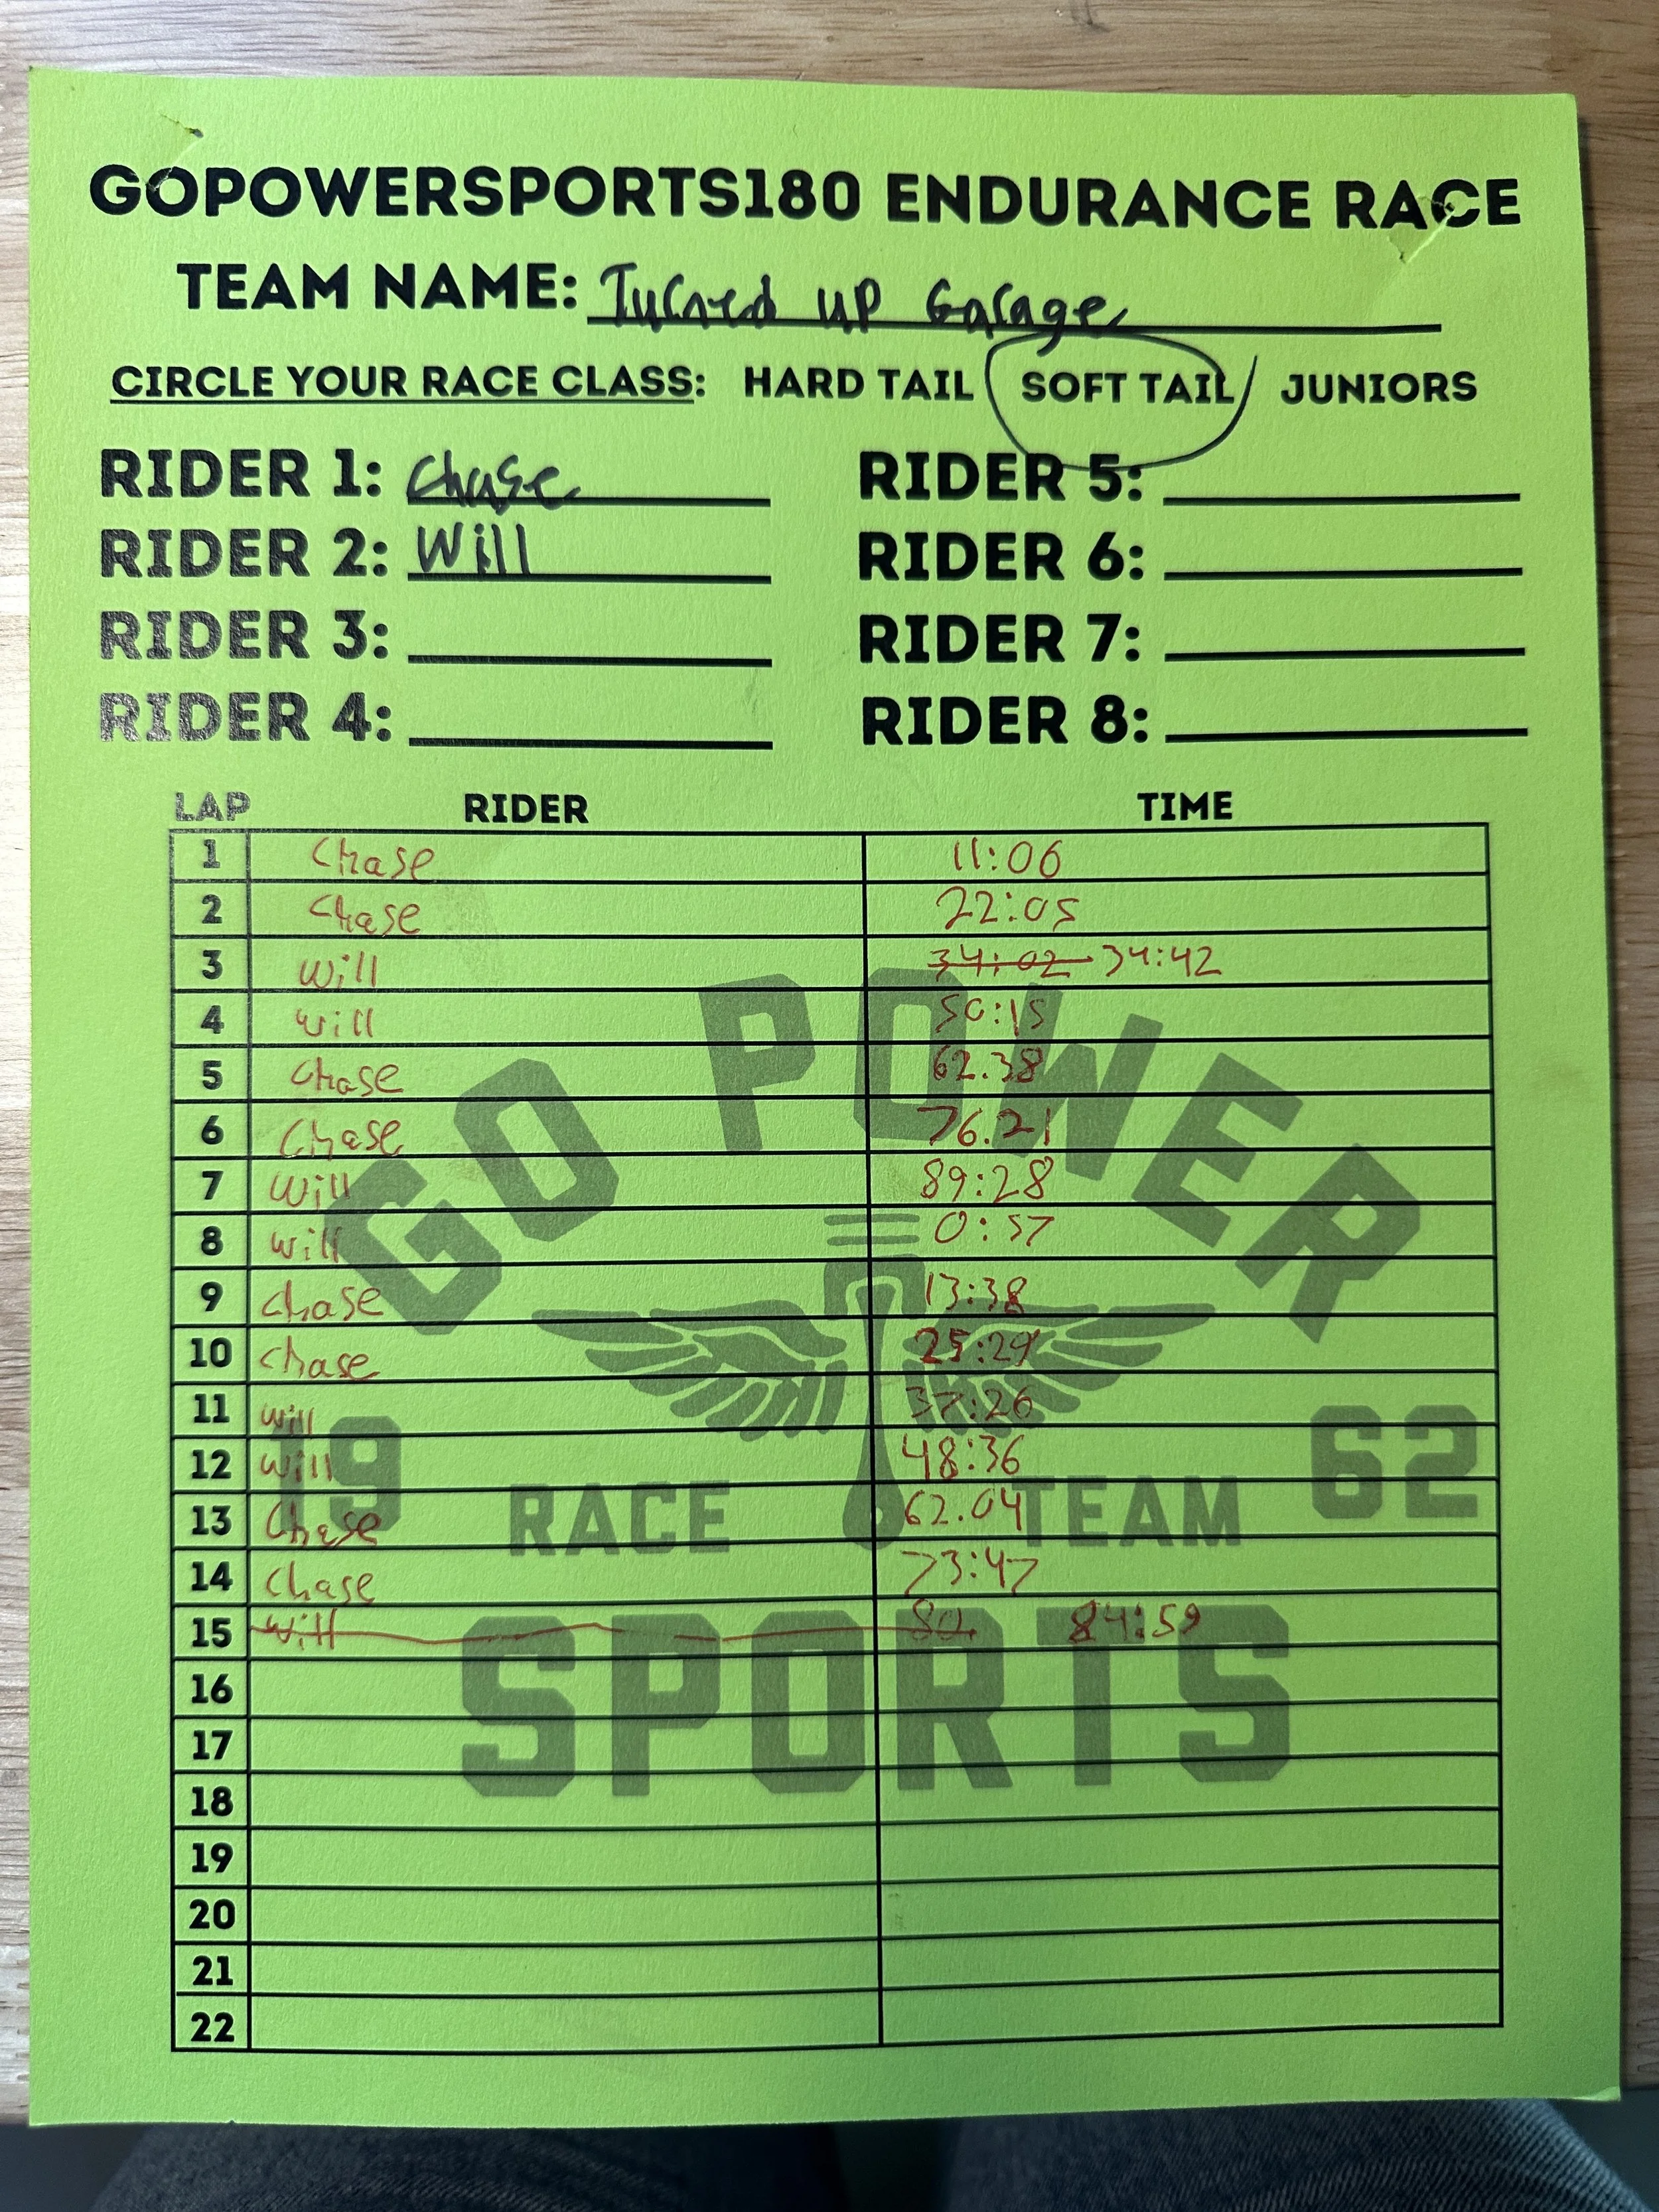 GOPOWERSPORTS180 ENDURANCE RACE
TEAM NAME: Turned up Garage
CIRCLE YOUR RACE CLASS: HARD TAIL SOFT TAIL JUNIORS
RIDER 1: Chase RIDER 5:
RIDER 2: Will RIDER 6:
RIDER 3: RIDER 7:
RIDER 4: RIDER 8:
LAP RIDER TIME
1 Chase 11:06
2 Chase 22:05
3 Will 34:02 34:42
4 Will 50:15
5 Chase 62.38
6 Chase 76.21
7 Will 89:28
8 Will 0:57
9 Chase 13:38
10 Chase 25:29
11 Will 37:26
12 Will 48:36
13 Chase 62.04
14 Chase 73:47
15 Will 80. 84:59
16
17
18
19
20
21
22
GO POWER
19 62
RACE TEAM
SPORTS